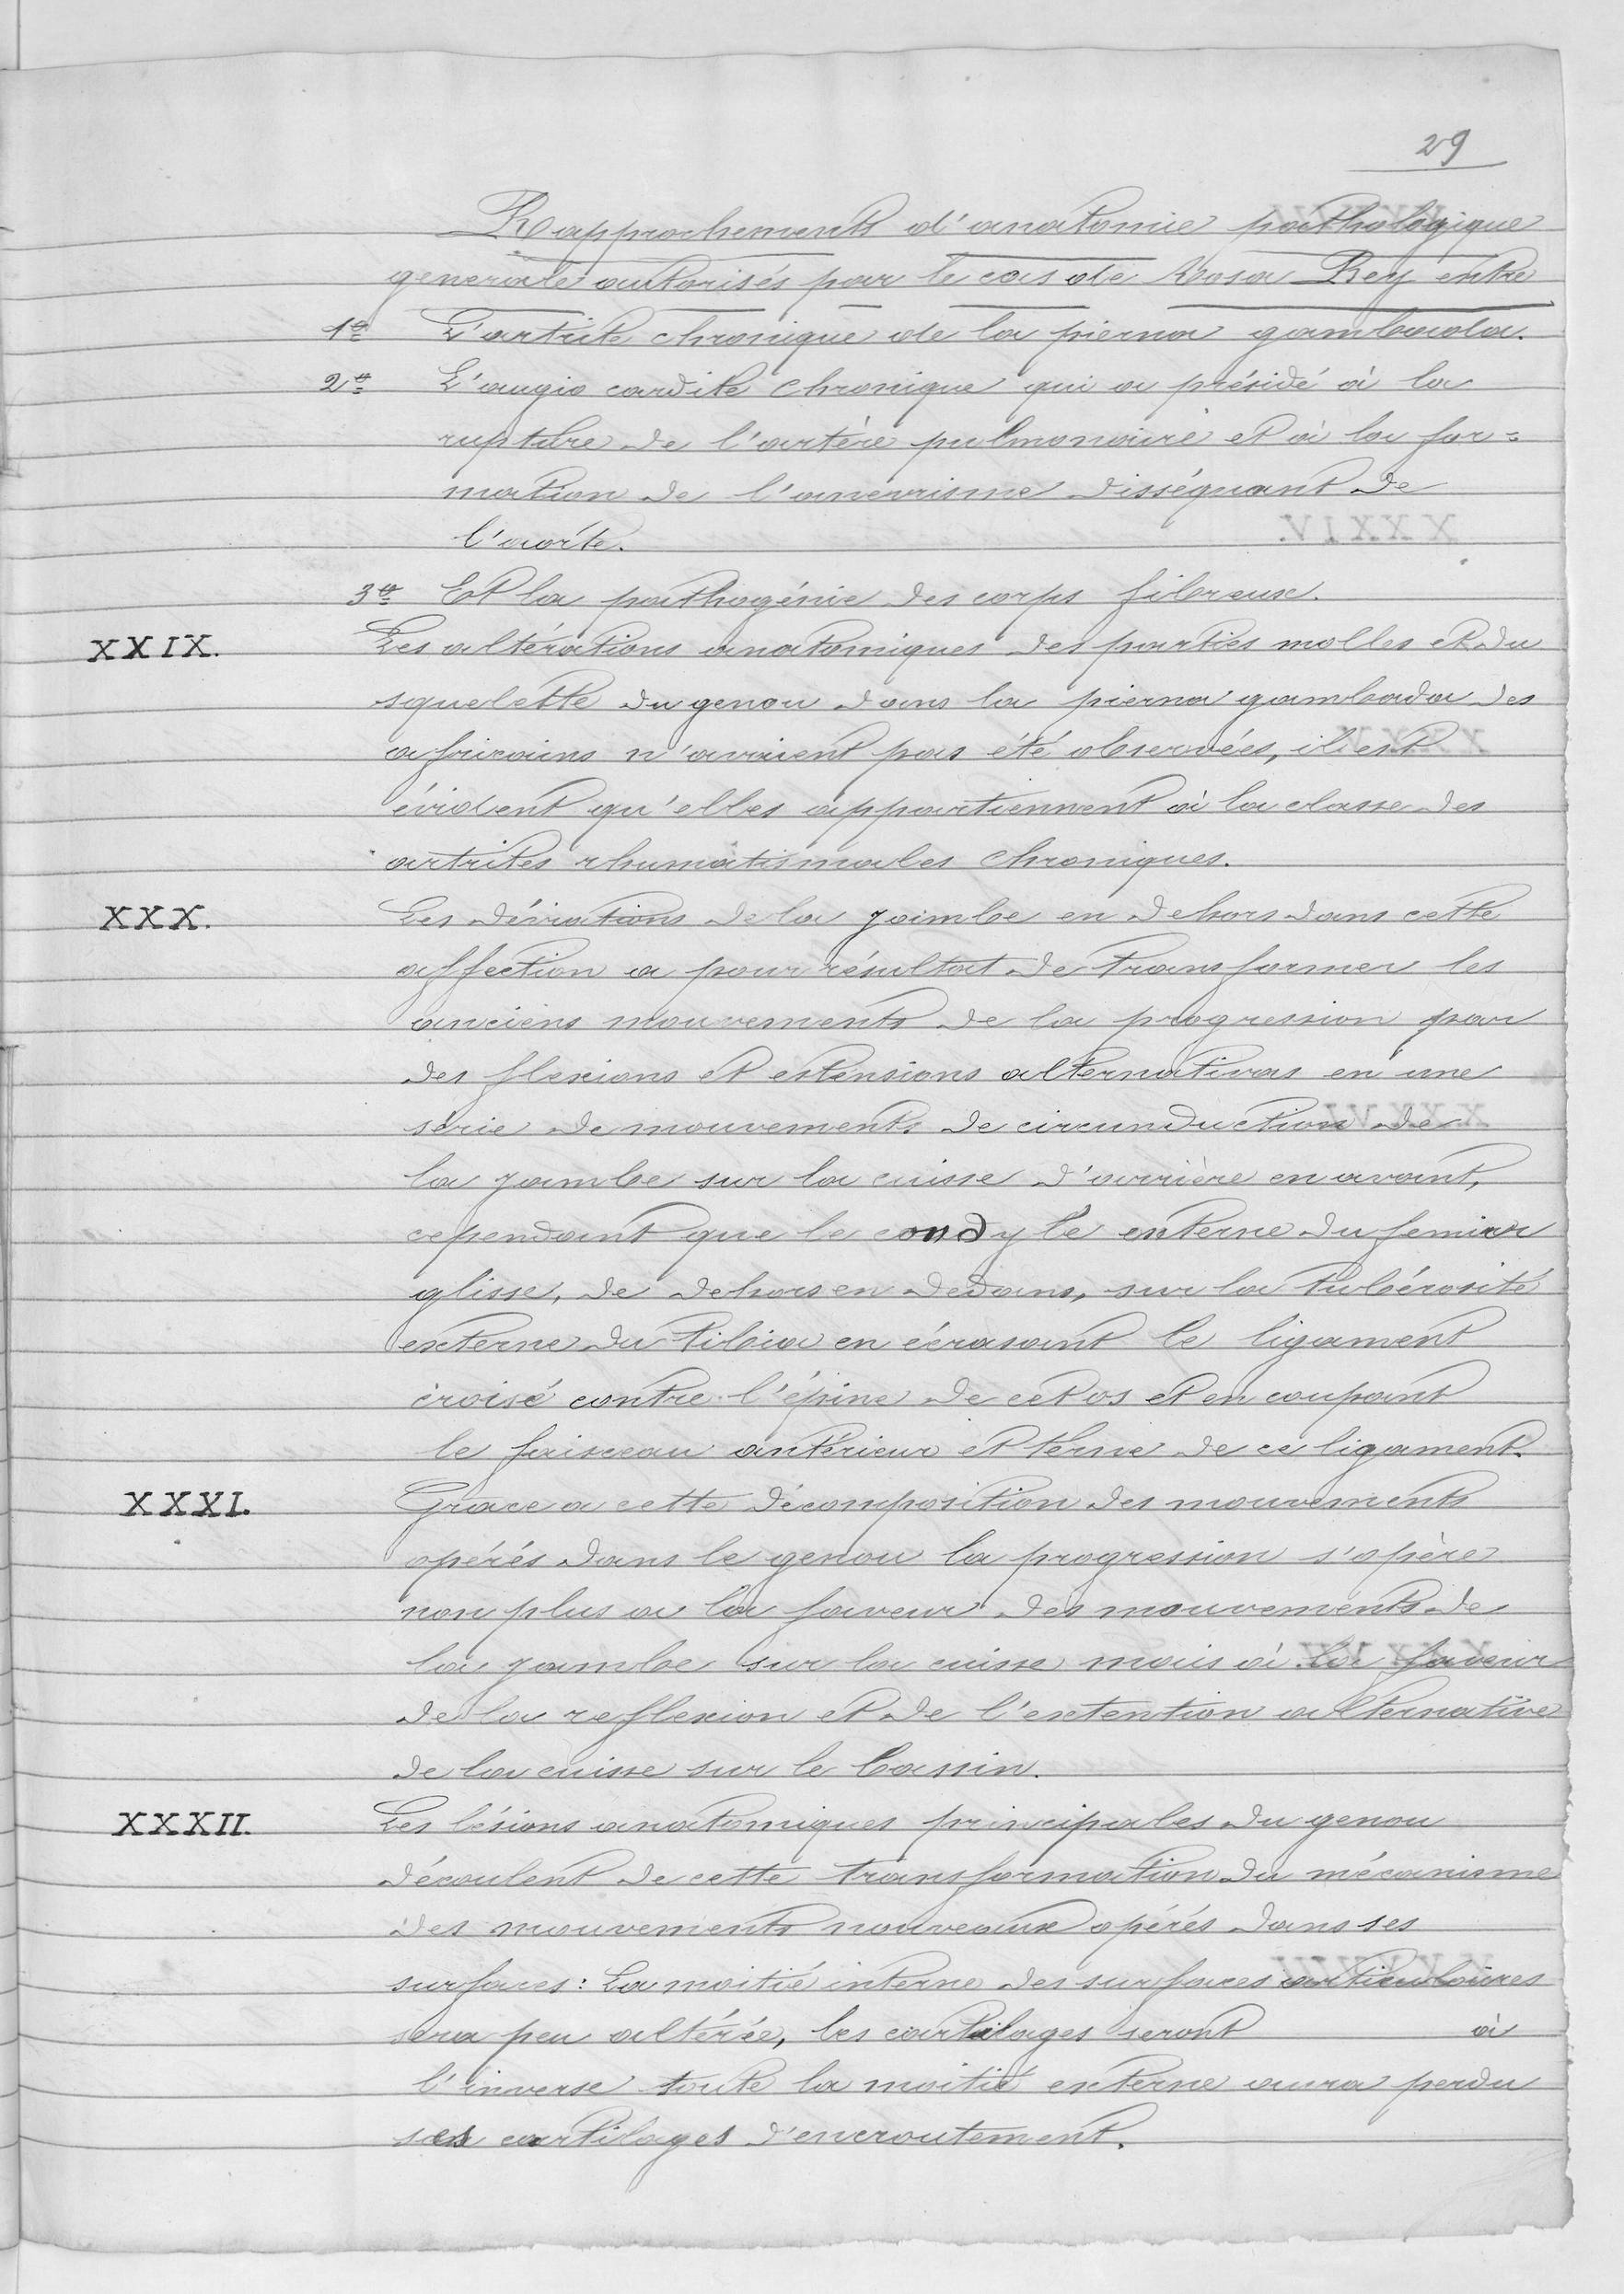 29
Rapprochements d'anatomie pathologique
generale autorisés par le cas de Rosa Rey entre
1º L'artrite chronique de la pierna gambada.
2º L'angio cardite chronique qui a présidé à la
rupture de l'artère pulmonaire et à la for=
mation de l'anevrisme disséquant de
l'aorte.
3º Et la pathogénie des corps fibreux.
XXIX. Les altérations anatomiques des parties molles et du
squelette du genou dans la pierna gambada des
africains n'avaient pas été observées, il est
évident qu'elles appartiennent à la classe des
artrites rhumatismales chroniques.
XXX. Les déviations de la jambe en dehors dans cette
affection a pour résultat de transformer les
anciens mouvements de la progression par
des flexions et extensions alternativas en une
série de mouvements de circunduction de
la jambe sur la cuisse d'arrière en avant,
cependant que le condyle externe du femur
glisse, de dehors en dedans, sur la tubérosité
externe du tibia en écrasant le ligament
croisé contre l'épine de cet os et en coupant
le faisceau antérieur et terne de ce ligament.
XXXI. Grace a cette décomposition des mouvements
opérés dans le genou la progression s'opère
non plus a la faveur des mouvements de
la jambe sur la cuisse mais à la faveur
de la reflexion et de l'extention alternative
de la cuisse sur le bassin.
XXXII. Les lésions anatomiques principales du genou
découlent de cette transformation du mécanisme
des mouvements nouveaux opérés dans ses
surfaces: La moitié interne des surfaces articulaires
sera peu altérée, les cartilages seront à
l'inverse toute la moitié externe aura perdu
ses cartilages d'encroutement.